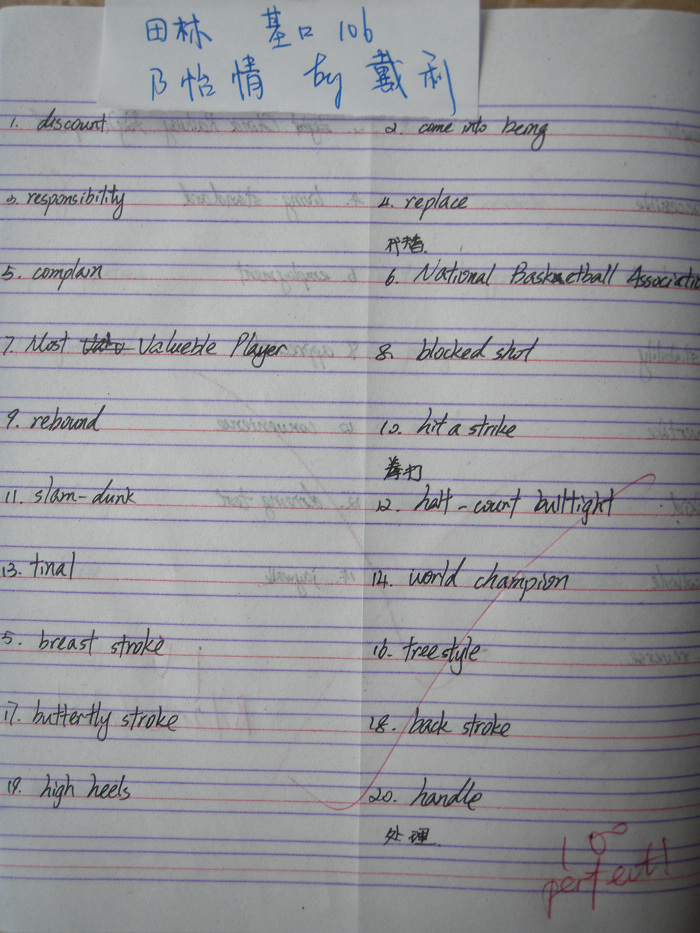 田林 基口 106
乃怡情 by 戴利
1. discount 2. come into being
3. responsibility 4. replace
代替.
5. complain 6. National Basketball Associatio
7. Most Valueble Player 8. blocked shot
9. rebound 10. hit a strike
拳打
11. slam-dunk 12. half-count bullfight
13. final 14. world champion
5. breast stroke 16. freestyle
17. butterfly stroke 18. back stroke
19. high heels 20. handle
处理.
100
perfect!